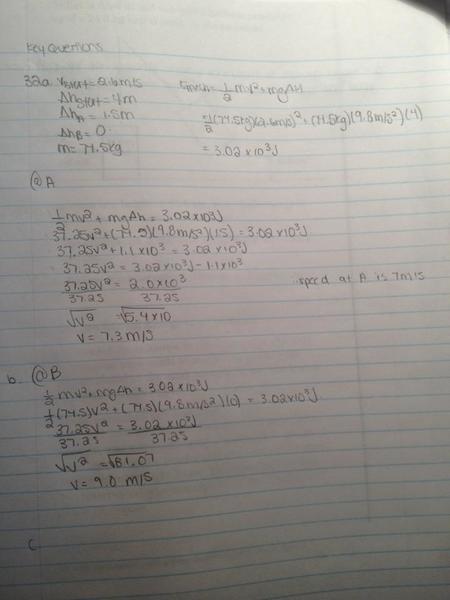 Key Questions
32a. Vstart = 2.6m/s
Δhstart = 4m
ΔhA = 1.5m
ΔhB = 0
m = 74.5kg
Emech = 1/2 mv² + mgΔh
= 1/2 (74.5kg)(2.6m/s)² + (74.5kg)(9.8m/s²)(4)
= 3.02 x 10³J
@A
1/2 mv² + mgΔh = 3.02x10³J
37.25v² + (74.5)(9.8m/s²)(1.5) = 3.02x10³J
37.25v² + 1.1x10³ = 3.02x10³J
37.25v² = 3.02x10³J - 1.1x10³
37.25v² = 2.0x10³
37.25 37.25
√v² = √5.4x10
v = 7.3 m/s
∴ speed at A is 7m/s
b. @B
1/2 mv² + mgΔh = 3.02x10³J
1/2 (74.5)v² + (74.5)(9.8m/s²)(0) = 3.02x10³J
37.25v² = 3.02x10³J
37.25 37.25
√v² = √81.07
v = 9.0 m/s
C